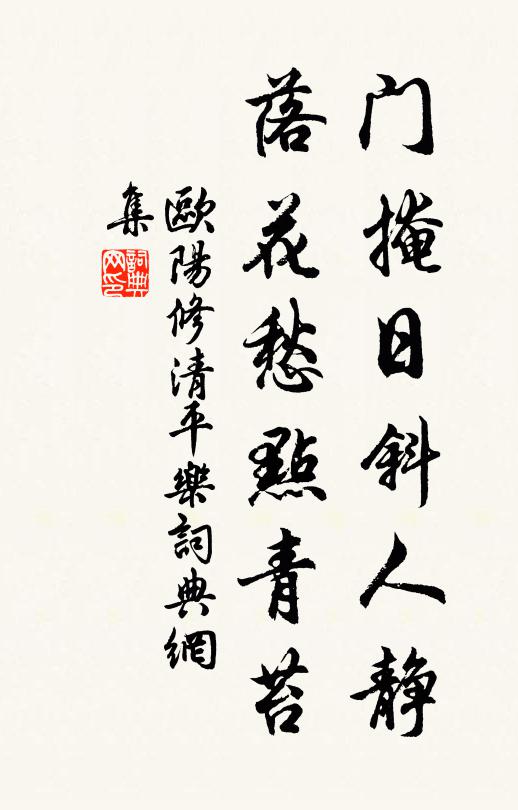 门掩日斜人静
落花愁點青苔
歐陽修清平樂詞典網
集
詞典網印